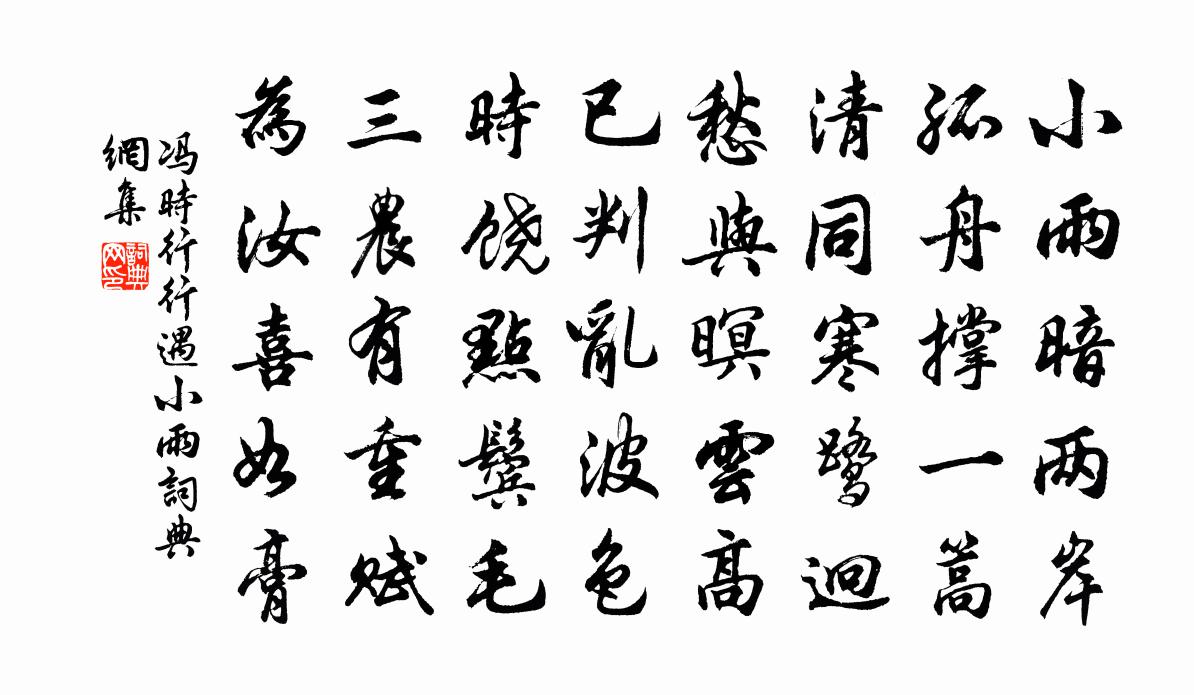 小雨暗两岸
孤舟撑一篙
清同寒鹭迥
愁與暝雲高
已判亂波色
時饶點鬓毛
三農有重赋
為汝喜如膏
冯時行行遇小雨詞典
網集
詞典网印